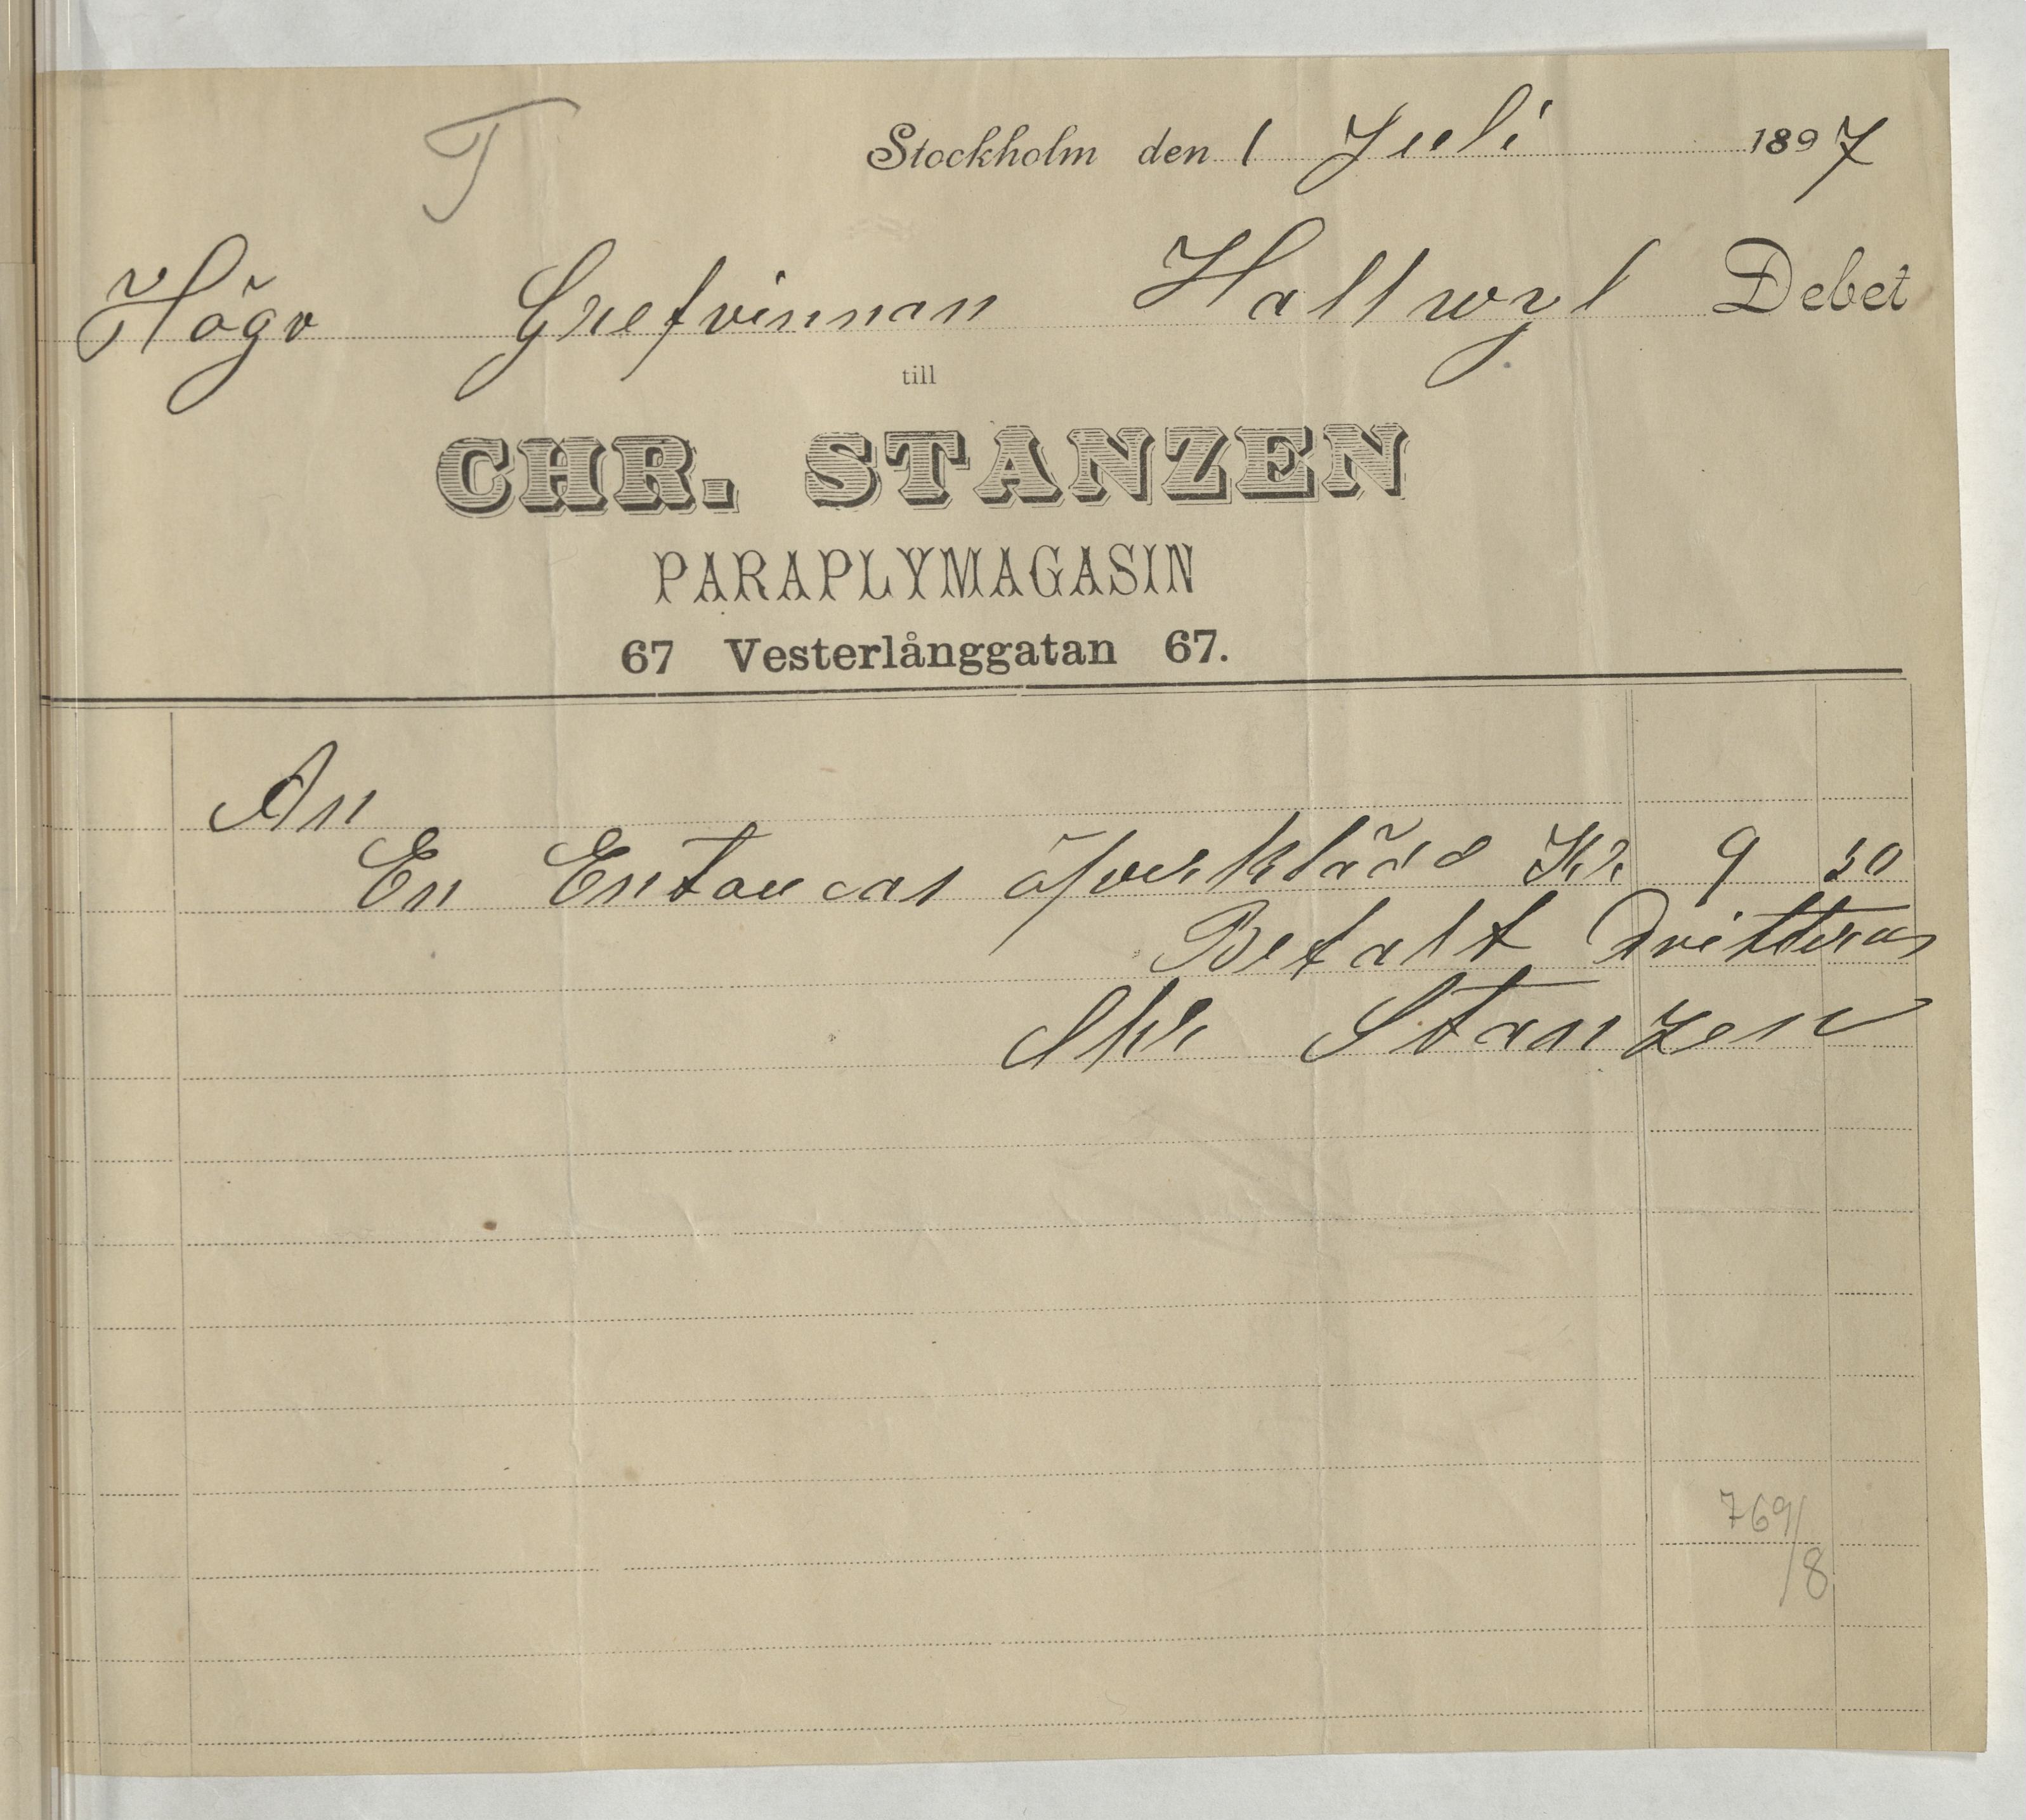 T
Stockholm den 1 Juli 1897
Högv Grefvinnan Hallwyl Debet
till
CHR. STANZEN
PARAPLYMAGASIN
67 Vesterlånggatan 67.
An
En Entoucas öfverklädd Kr 9 50
Betalt Qvitteras
Chr Stanzen
769/8